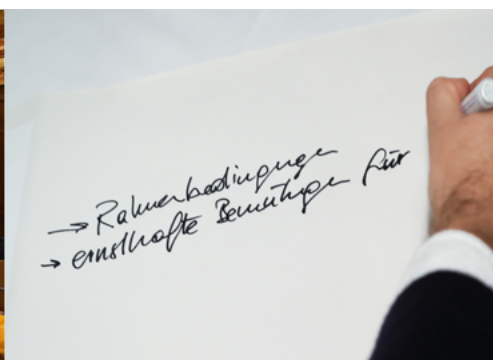 → Rahmenbedingungen
→ ernsthafte Bemühungen für